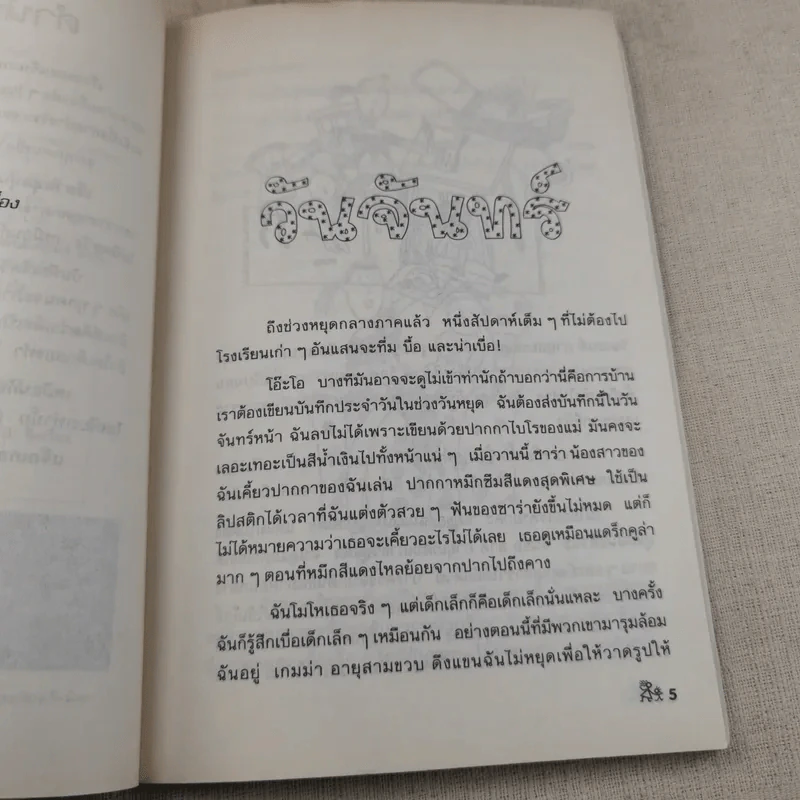 วันจันทร์
ถึงช่วงหยุดกลางภาคแล้ว หนึ่งสัปดาห์เต็ม ๆ ที่ไม่ต้องไป
โรงเรียนเก่า ๆ อันแสนจะทึ่ม บื้อ และน่าเบื่อ!
โอ๊ะโอ บางทีมันอาจจะดูไม่เข้าท่านักถ้าบอกว่านี่คือการบ้าน
เราต้องเขียนบันทึกประจำวันในช่วงวันหยุด ฉันต้องส่งบันทึกนี้ในวัน
จันทร์หน้า ฉันลบไม่ได้เพราะเขียนด้วยปากกาไบโรของแม่ มันคงจะ
เลอะเทอะเป็นสีน้ำเงินไปทั้งหน้าแน่ ๆ เมื่อวานนี้ ซาร่า น้องสาวของ
ฉันเคี้ยวปากกาของฉันเล่น ปากกาหมึกซึมสีแดงสุดพิเศษ ใช้เป็น
ลิปสติกได้เวลาที่ฉันแต่งตัวสวย ๆ ฟันของซาร่ายังขึ้นไม่หมด แต่ก็
ไม่ได้หมายความว่าเธอจะเคี้ยวอะไรไม่ได้เลย เธอดูเหมือนแดร็กคูล่า
มาก ๆ ตอนที่หมึกสีแดงไหลย้อยจากปากไปถึงคาง
ฉันโมโหเธอจริง ๆ แต่เด็กเล็กก็คือเด็กเล็กนั่นแหละ บางครั้ง
ฉันก็รู้สึกเบื่อเด็กเล็ก ๆ เหมือนกัน อย่างตอนนี้ที่มีพวกเขามารุมล้อม
ฉันอยู่ เกมม่า อายุสามขวบ ดึงแขนฉันไม่หยุดเพื่อให้วาดรูปให้
5